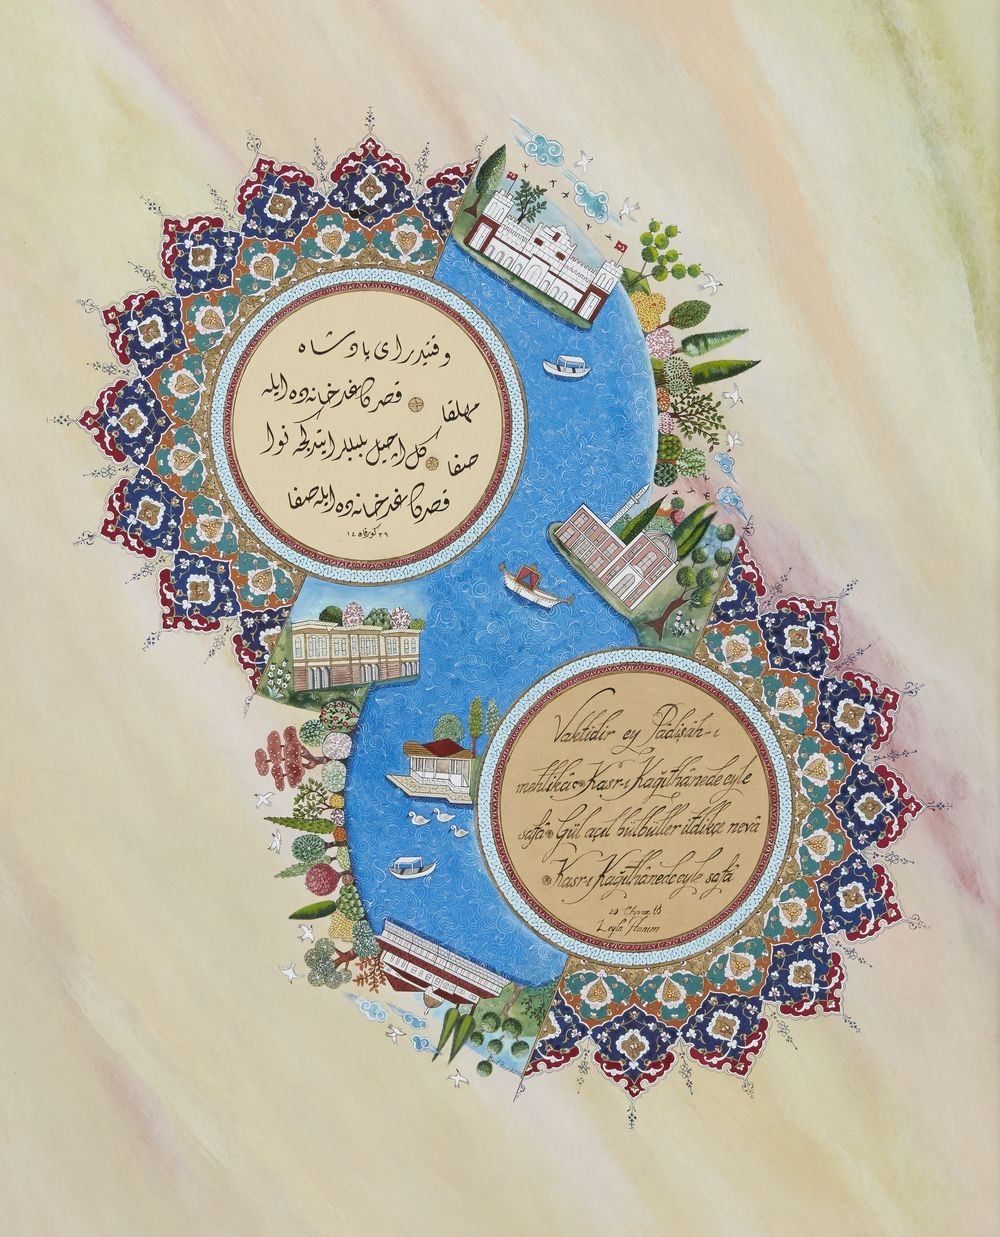 وقتيدر اى پادشاه
مهلقا قصر كاغدخانه ده ايله
صفا كل اچيل بلبللر ايتدكجه نوا
قصر كاغدخانه ده ايله صفا
Vaktidir ey Pâdişâh-ı
mehlikâ Kasr-ı Kağıthânede eyle
safâ Gül açıl bülbüller itdikçe nevâ
Kasr-ı Kağıthânede eyle safâ
Leylâ Hanım